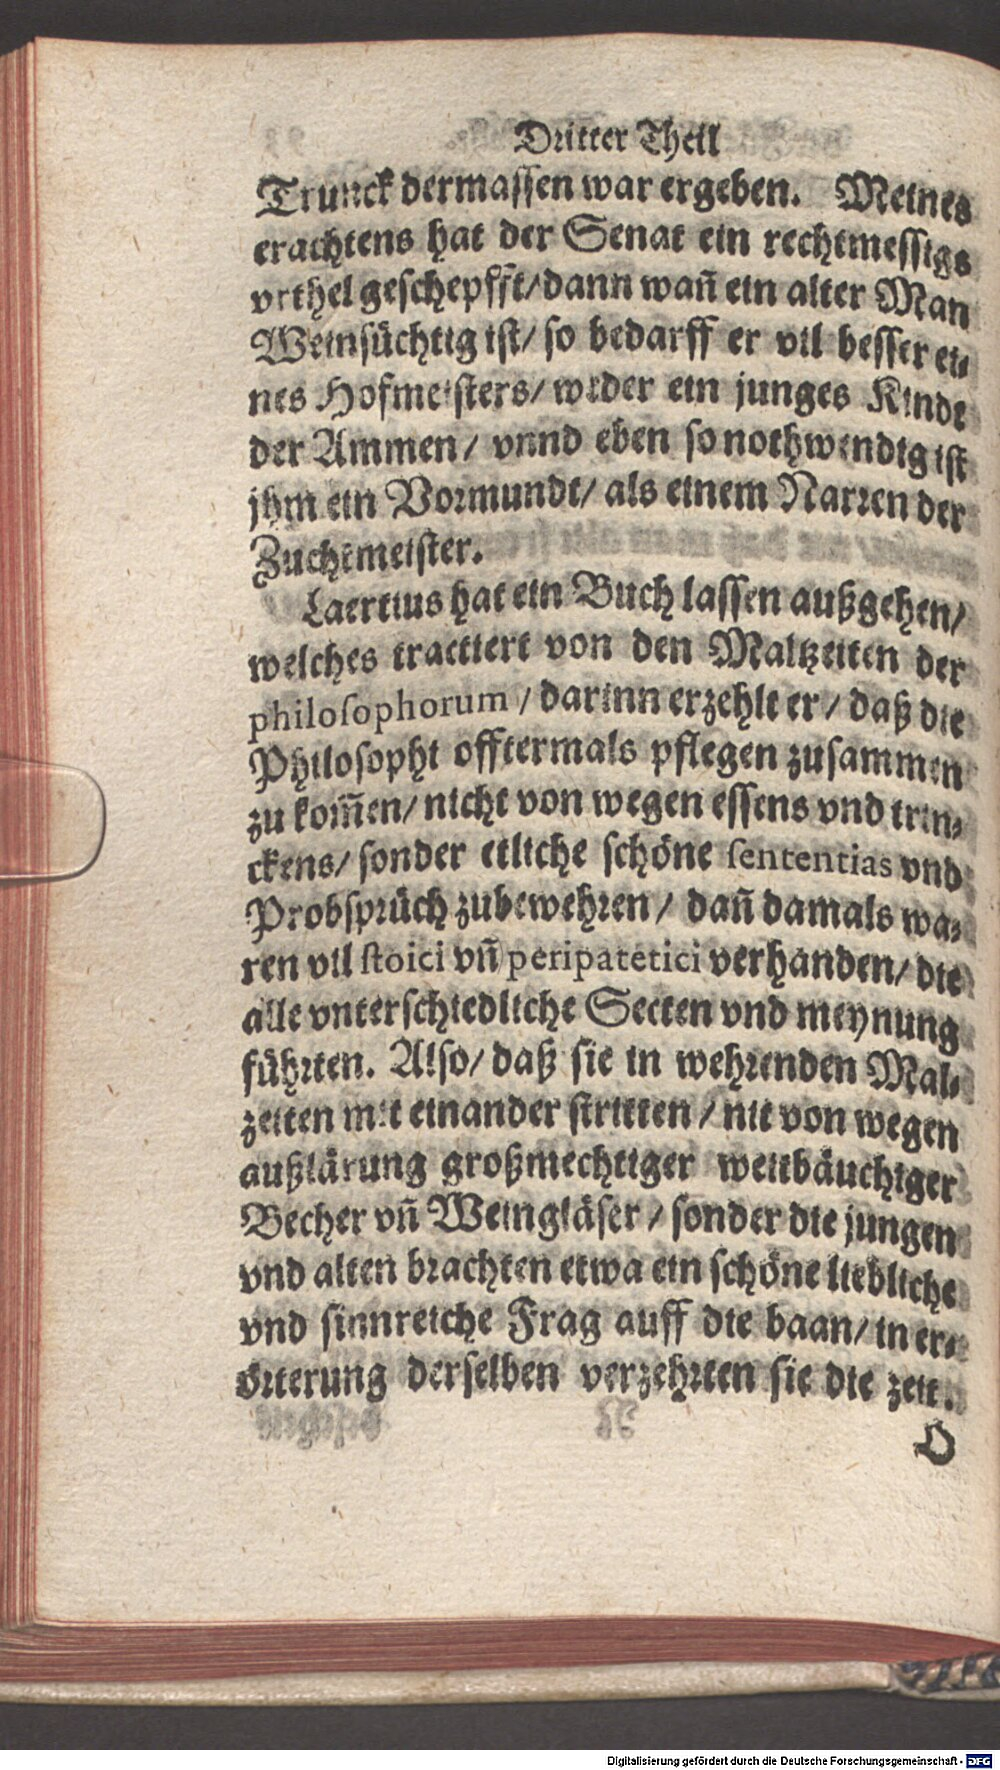 Dritter Theil
Trunck dermassen war ergeben. Meines
erachtens hat der Senat ein rechtmessigs
vrthel geschepfft/ dann wañ ein alter Man
Weinsüchtig ist/ so bedarff er vil besser ei-
nes Hofmeisters/ weder ein junges Kindt
der Ammen/ vnnd eben so nothwendig ist
jhm ein Vormundt/ als einem Narren der
Zuchtmeister.
Laertius hat ein Buch lassen außgehen/
welches tractiert von den Maltzeiten der
philosophorum / darinn erzehlt er / daß die
Philosophi offtermals pflegen zusammen
zu kom̃en/ nicht von wegen essens vnd trin-
ckens/ sonder etliche schöne sententias vnd
Probsprüch zubewehren / dañ damals wa-
ren vil stoici vñ peripatetici verhanden/ die
alle vnterschiedliche Secten vnd meynung
führten. Also/ daß sie in wehrenden Mal-
zeiten mit einander stritten / nit von wegen
außlärung großmechtiger weitbäuchiger
Becher vñ Weingläser / sonder die jungen
vnd alten brachten etwa ein schöne liebliche
vnd sinnreiche Frag auff die baan/ in er-
örterung derselben verzehrten sie die zeit.
O
Digitalisierung gefördert durch die Deutsche Forschungsgemeinschaft - DFG